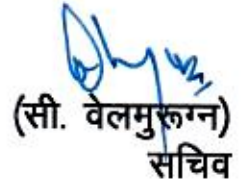 (सी. वेलमुरूग्न)
सचिव